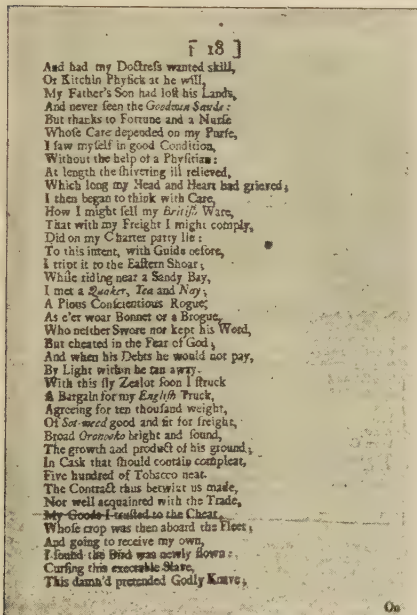 [ 18 ]
And had my Doctreſs wanted skill,
Or Kitchin Phyſick at he will,
My Father's Son had loſt his Lands,
And never ſeen the Goodwin Sands:
But thanks to Fortune and a Nurſe
Whoſe Care depended on my Purſe,
I ſaw myſelf in good Condition,
Without the help of a Phyſitian:
At length the ſhivering ill relieved,
Which long my Head and Heart had grieved;
I then began to think with Care,
How I might ſell my Britiſh Ware,
That with my Freight I might comply,
Did on my Charter party lie:
To this intent, with Guide before,
I tript it to the Eaſtern Shoar;
While riding near a Sandy Bay,
I met a Quaker, Yea and Nay;
A Pious Conſcientious Rogue,
As e'er woar Bonnet or a Brogue,
Who neither Swore nor kept his Word,
But cheated in the Fear of God;
And when his Debts he would not pay,
By Light within he ran away.
With this ſly Zealot ſoon I ſtruck
A Bargain for my Engliſh Truck,
Agreeing for ten thouſand weight,
Of Sot-weed good and fit for freight,
Broad Oronooko bright and ſound,
The growth and product of his ground;
In Cask that ſhould contain compleat,
Five hundred of Tobacco neat.
The Contract thus betwixt us made,
Not well acquainted with the Trade,
My Goods I truſted to the Cheat,
Whoſe crop was then aboard the Fleet;
And going to receive my own,
I found the Bird was newly flown:
Curſing this execrable Slave,
This damn'd pretended Godly Knave;
On